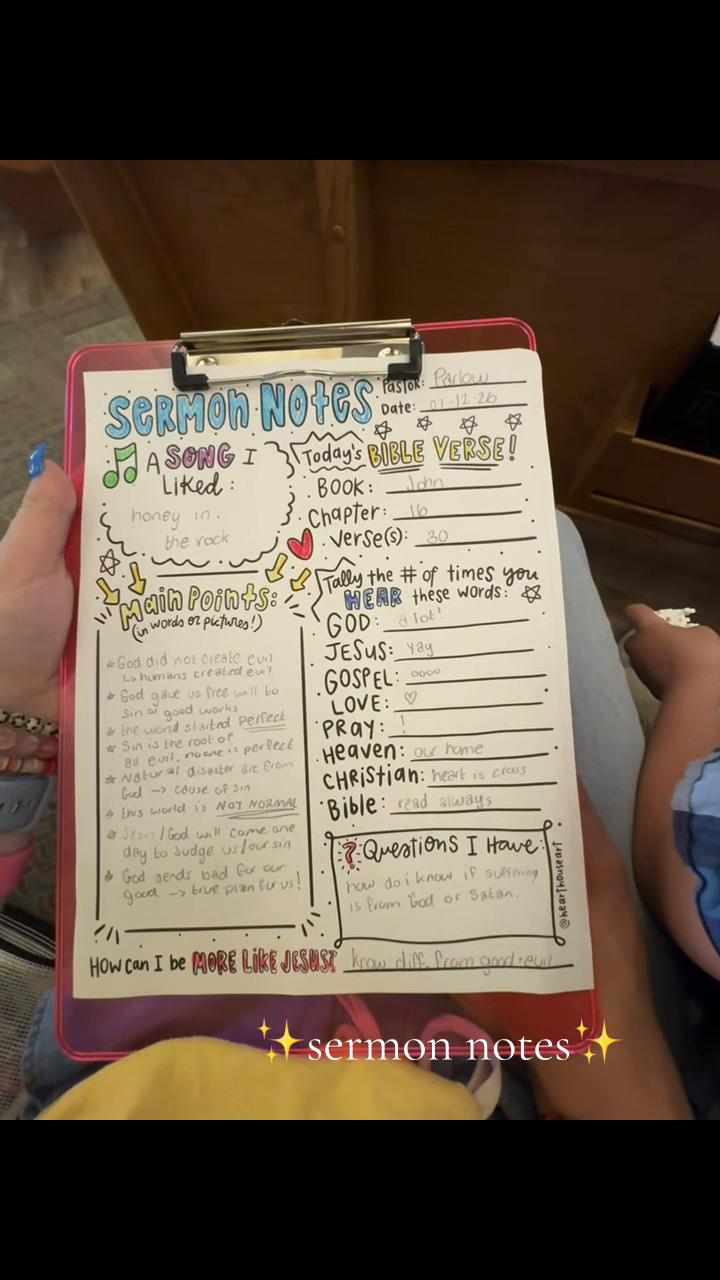 SERMON NOTES
Pastor: Parlow
Date: 07-12-26
A SONG I
Liked:
honey in
the rock
Today's BIBLE VERSE!
BOOK: John
Chapter: 16
Verse(s): 30
Main Points:
(in words or pictures!)
God did not create evil
↳ humans created evil
God gave us free will to
sin or good works
the world started perfect
Sin is the root of
all evil, no one is perfect
Natural disaster are from
God → cause of sin
this world is NOT NORMAL
Jesus/God will come one
day to judge us/our sin
God sends bad for our
good → true plan for us!
Tally the # of times you
HEAR these words:
GOD: a lot!
JESUS: yay
GOSPEL: oooo
LOVE: ♡
PRAY: !
Heaven: our home
CHRISTIAN: heart is cross
Bible: read always
? Questions I Have:
how do i know if suffering
is from God or Satan.
@hearthouseart
HOW CAN I be MORE LIKE JESUS? know diff. from good + evil
✨sermon notes✨